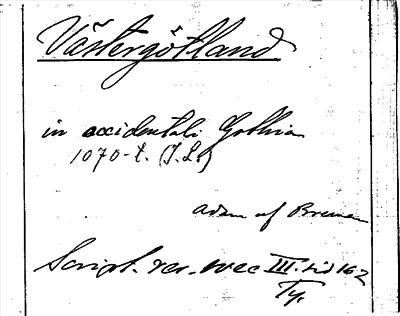 Västergötland
in occidentali Gothia
1070-t. (J.L.)
Adam af Bremen
Script. rer. svec III. sid 162
Ty.